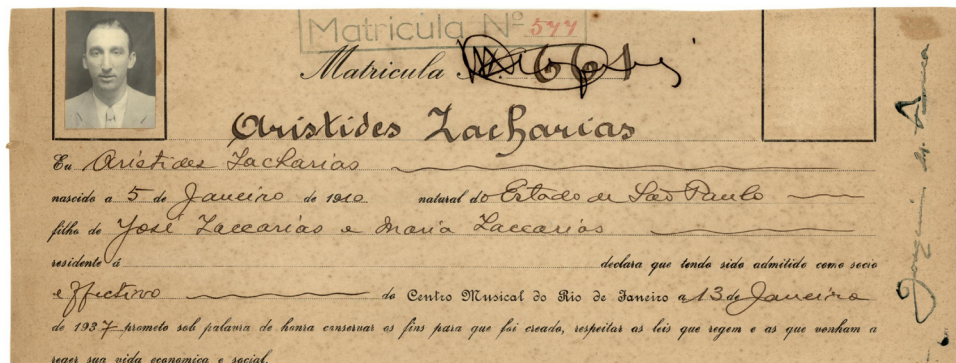 Matricula Nº 577
Matricula Nº 661
Aristides Zacharias
Eu Aristides Zacharias
nascido a 5 de Janeiro de 1910 natural do Estado de São Paulo
filho de José Zaccarias e Maria Zaccarias
residente á declara que tendo sido admitido como socio
effectivo do Centro Musical do Rio de Janeiro a 13 de Janeiro
de 1937 prometo sob palavra de honra conservar os fins para que foi creado, respeitar as leis que regem e as que venham a
reger sua vida economica e social.
Joaquim